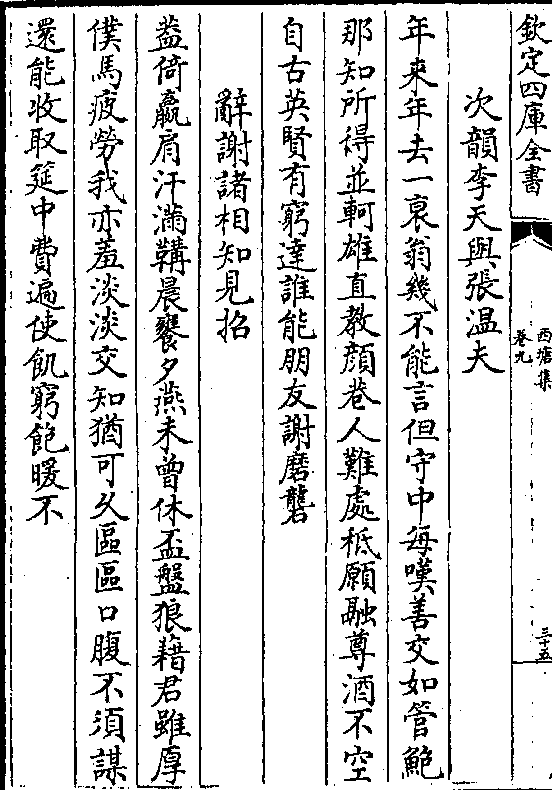 欽定四庫全書
西塘集
卷九
三十五
次韻李天與張温夫
年來年去一衰翁幾不能言但守中每嘆善交如管鮑
那知所得並軻雄直教顔巷人難處秪願融尊酒不空
自古英賢有窮達誰能朋友謝磨礱
辭謝諸相知見招
葢倚羸肩汗滿鞲晨饔夕燕未曽休盃盤狼籍君雖厚
僕馬疲勞我亦羞淡淡交知猶可久區區口腹不須謀
還能收取筵中費遍使飢窮飽暖不